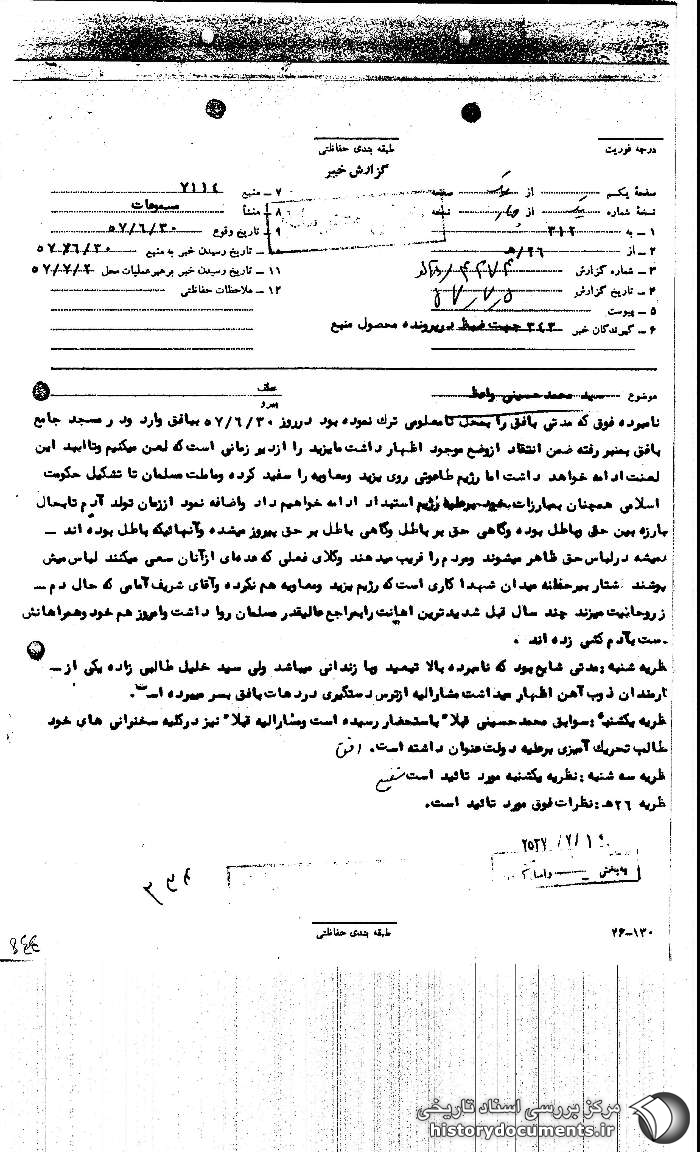 درجه فوریت
طبقه بندی حفاظتی
گزارش خبر
صفحهٔ یکم از یک صفحه
نسخهٔ شماره یک از چهار نسخه
۱ ـ به ۳۱۲
۲ ـ از ۲۶/ه
۳ ـ شماره گزارش
۴ ـ تاریخ گزارش
۵ ـ پیوست
۶ ـ گیرندگان خبر ۳۴۳ جهت ضبط در پرونده محصول منبع
۷ ـ منبع ۷۱۱۴
۸ ـ منشأ مسموعات
۹ ـ تاریخ وقوع ۵۷/۶/۳۰
تاریخ رسیدن خبر به منبع ۵۷/۶/۳۰
۱۱ ـ تاریخ رسیدن خبر برهبر عملیات محل ۵۷/۷/۲
۱۲ ـ ملاحظات حفاظتی
موضوع سید محمد حسینی واعظ
عطف
پیرو
نامبرده فوق که مدتی بافق را بمحل نامعلومی ترک نموده بود درروز ۵۷/۶/۳۰ ببافق وارد ود ر مسجد جامع
بافق بمنبر رفته ضمن انتقاد ازوضع موجود اظهار داشت مایزید را ازدیر زمانی است که لعن میکنیم وتاابید این
لعنت ادامه خواهد داشت اما رژیم طاغوتی روی یزید ومعاویه را سفید کرده وماملت مسلمان تا تشکیل حکومت
اسلامی همچنان بمبارزات خود برعلیه رژیم استبداد ادامه خواهیم داد واضافه نمود اززمان تولد آدم تابحال
بارزه بین حق وباطل بوده وگاهی حق بر باطل وگاهی باطل بر حق پیروز میشده وآنهائیکه باطل بوده اند ـ
نمیشه درلباس حق ظاهر میشوند ومردم را فریب میدهند وکلای فعلی که عده‌ای ازآنان سعی میکنند لباس میش
بپوشند شتار بیرحمانه میدان شهدا کاری است که رژیم یزید ومعاویه هم نکرده وآقای شریف امامی که حال دم ـ
ز روحانیت میزند چند سال قبل شدیدترین اهانت رابمراجع عالیقدر مسلمان روا داشت وامروز هم خود وهمراهانش
ست بآدم کشی زده اند .
ظریه شنبه : مدتی شایع بود که نامبرده بالا تبعید ویا زندانی میباشد ولی سید خلیل طالبی زاده یکی از ـ
ارمندان ذوب آهن اظهار میداشت مشارالیه ازترس دستگیری درد هات بافق بسر میبرده است.
ظریه یکشنبه : سوابق محمد حسینی قبلا" باستحضار رسیده است ومشارالیه قبلا" نیز درکلیه سخنرانی های خود
طالب تحریک آمیزی برعلیه دولت عنوان داشته است. افق
ظریه سه شنبه : نظریه یکشنبه مورد تائید است شفیع
ظریه ۲۶ه : نظرات فوق مورد تائید است.
۲۵۳۷/۷/۱۹
به بخش
طبقه بندی حفاظتی
۲۶-۱۳۰
مرکز بررسی اسناد تاریخی
historydocuments.ir